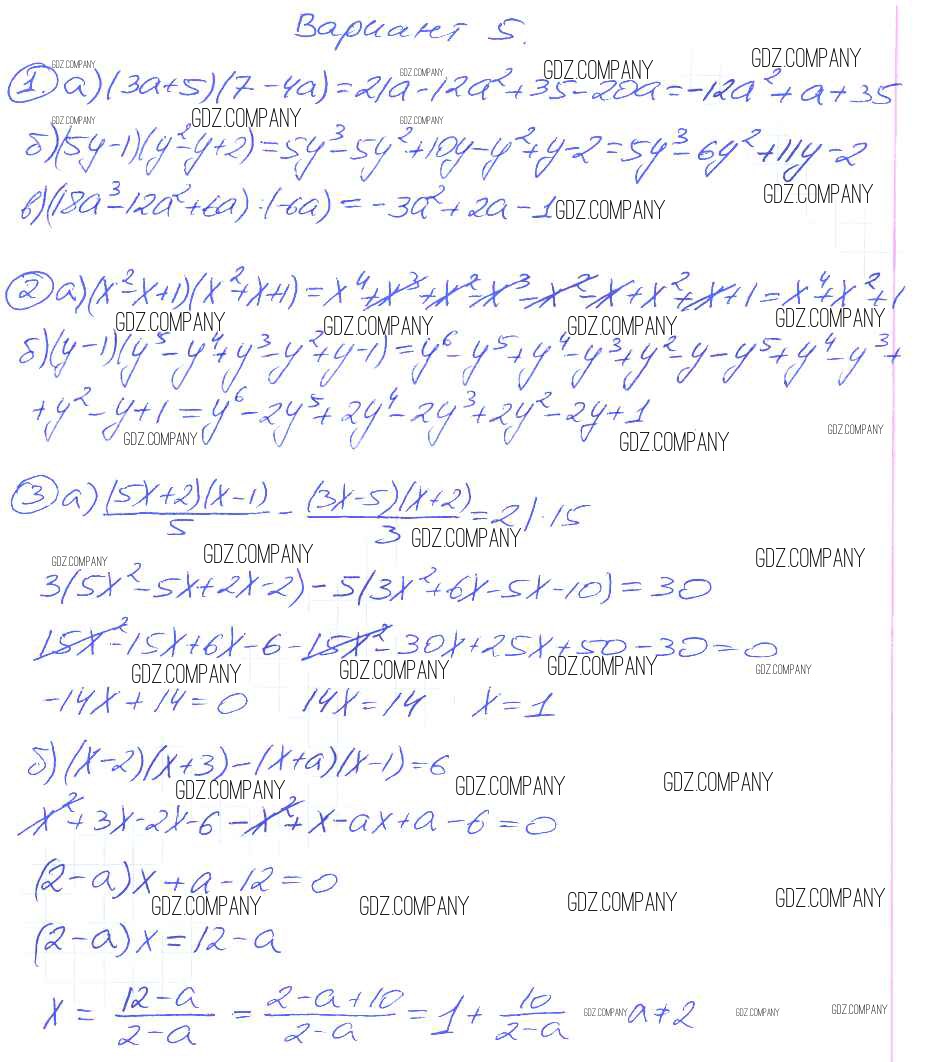 Вариант 5.
GDZ.COMPANY GDZ.COMPANY GDZ.COMPANY GDZ.COMPANY
① а) (3a+5)(7-4a)=21a-12a²+35-20a=-12a²+a+35
GDZ.COMPANY GDZ.COMPANY GDZ.COMPANY
б) (5y-1)(y²-y+2)=5y³-5y²+10y-y²+y-2=5y³-6y²+11y-2
GDZ.COMPANY
в) (18a³-12a²+6a):(-6a)=-3a²+2a-1 GDZ.COMPANY
② а) (x²-x+1)(x²+x+1)=x⁴+x³+x²-x³-x²-x+x²+x+1=x⁴+x²+1
GDZ.COMPANY GDZ.COMPANY GDZ.COMPANY GDZ.COMPANY
б) (y-1)(y⁵-y⁴+y³-y²+y-1)=y⁶-y⁵+y⁴-y³+y²-y-y⁵+y⁴-y³+
+y²-y+1=y⁶-2y⁵+2y⁴-2y³+2y²-2y+1
GDZ.COMPANY GDZ.COMPANY GDZ.COMPANY
③ а) (5x+2)(x-1)/5 - (3x-5)(x+2)/3 =2 |·15
GDZ.COMPANY
GDZ.COMPANY GDZ.COMPANY GDZ.COMPANY
3(5x²-5x+2x-2)-5(3x²+6x-5x-10)=30
15x²-15x+6x-6-15x²-30x+25x+50-30=0
GDZ.COMPANY GDZ.COMPANY GDZ.COMPANY GDZ.COMPANY
-14x+14=0 14x=14 x=1
б) (x-2)(x+3)-(x+a)(x-1)=6
GDZ.COMPANY GDZ.COMPANY GDZ.COMPANY
x²+3x-2x-6-x²+x-ax+a-6=0
(2-a)x+a-12=0
GDZ.COMPANY GDZ.COMPANY GDZ.COMPANY GDZ.COMPANY
(2-a)x=12-a
x = (12-a)/(2-a) = (2-a+10)/(2-a) = 1+ 10/(2-a) GDZ.COMPANY a≠2 GDZ.COMPANY GDZ.COMPANY